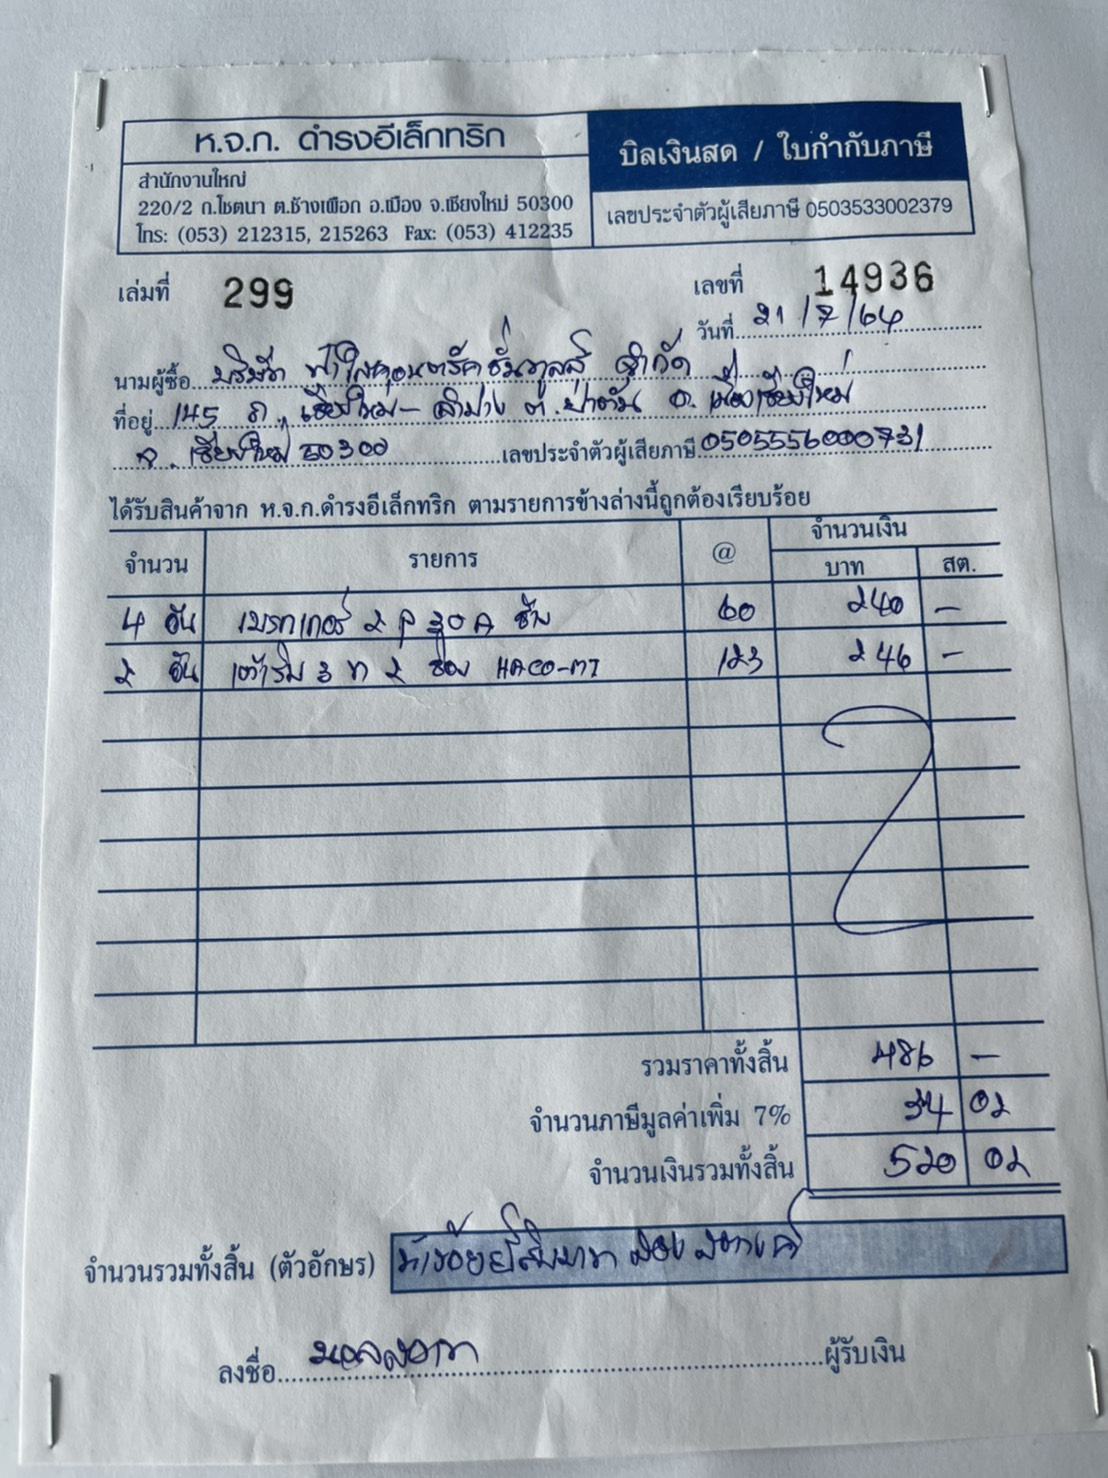 ห.จ.ก. ดำรงอีเล็กทริก
บิลเงินสด / ใบกำกับภาษี
สำนักงานใหญ่
220/2 ถ.โชตนา ต.ช้างเผือก อ.เมือง จ.เชียงใหม่ 50300
โทร: (053) 212315, 215263 Fax: (053) 412235
เลขประจำตัวผู้เสียภาษี 0503533002379
เล่มที่ 299
เลขที่ 14936
วันที่ 21/7/64
นามผู้ซื้อ บริษัท ฟ้าใส จำกัด
ที่อยู่ 145 ถ. เชียงใหม่-ลำปาง ต.ป่าตัน อ. เมืองเชียงใหม่
จ. เชียงใหม่ 50300 เลขประจำตัวผู้เสียภาษี 0505556000731
ได้รับสินค้าจาก ห.จ.ก.ดำรงอีเล็กทริก ตามรายการข้างล่างนี้ถูกต้องเรียบร้อย
จำนวน รายการ @ จำนวนเงิน
บาท สต.
4 อัน เบรกเกอร์ 2 P 30 A ช้าง 60 240 -
2 อัน เต้ารับ 3 ข 2 ช่อง HACO-M1 123 246 -
รวมราคาทั้งสิ้น 486 -
จำนวนภาษีมูลค่าเพิ่ม 7% 34 02
จำนวนเงินรวมทั้งสิ้น 520 02
จำนวนรวมทั้งสิ้น (ตัวอักษร) ห้าร้อยยี่สิบบาท สองสตางค์
ลงชื่อ ผู้รับเงิน